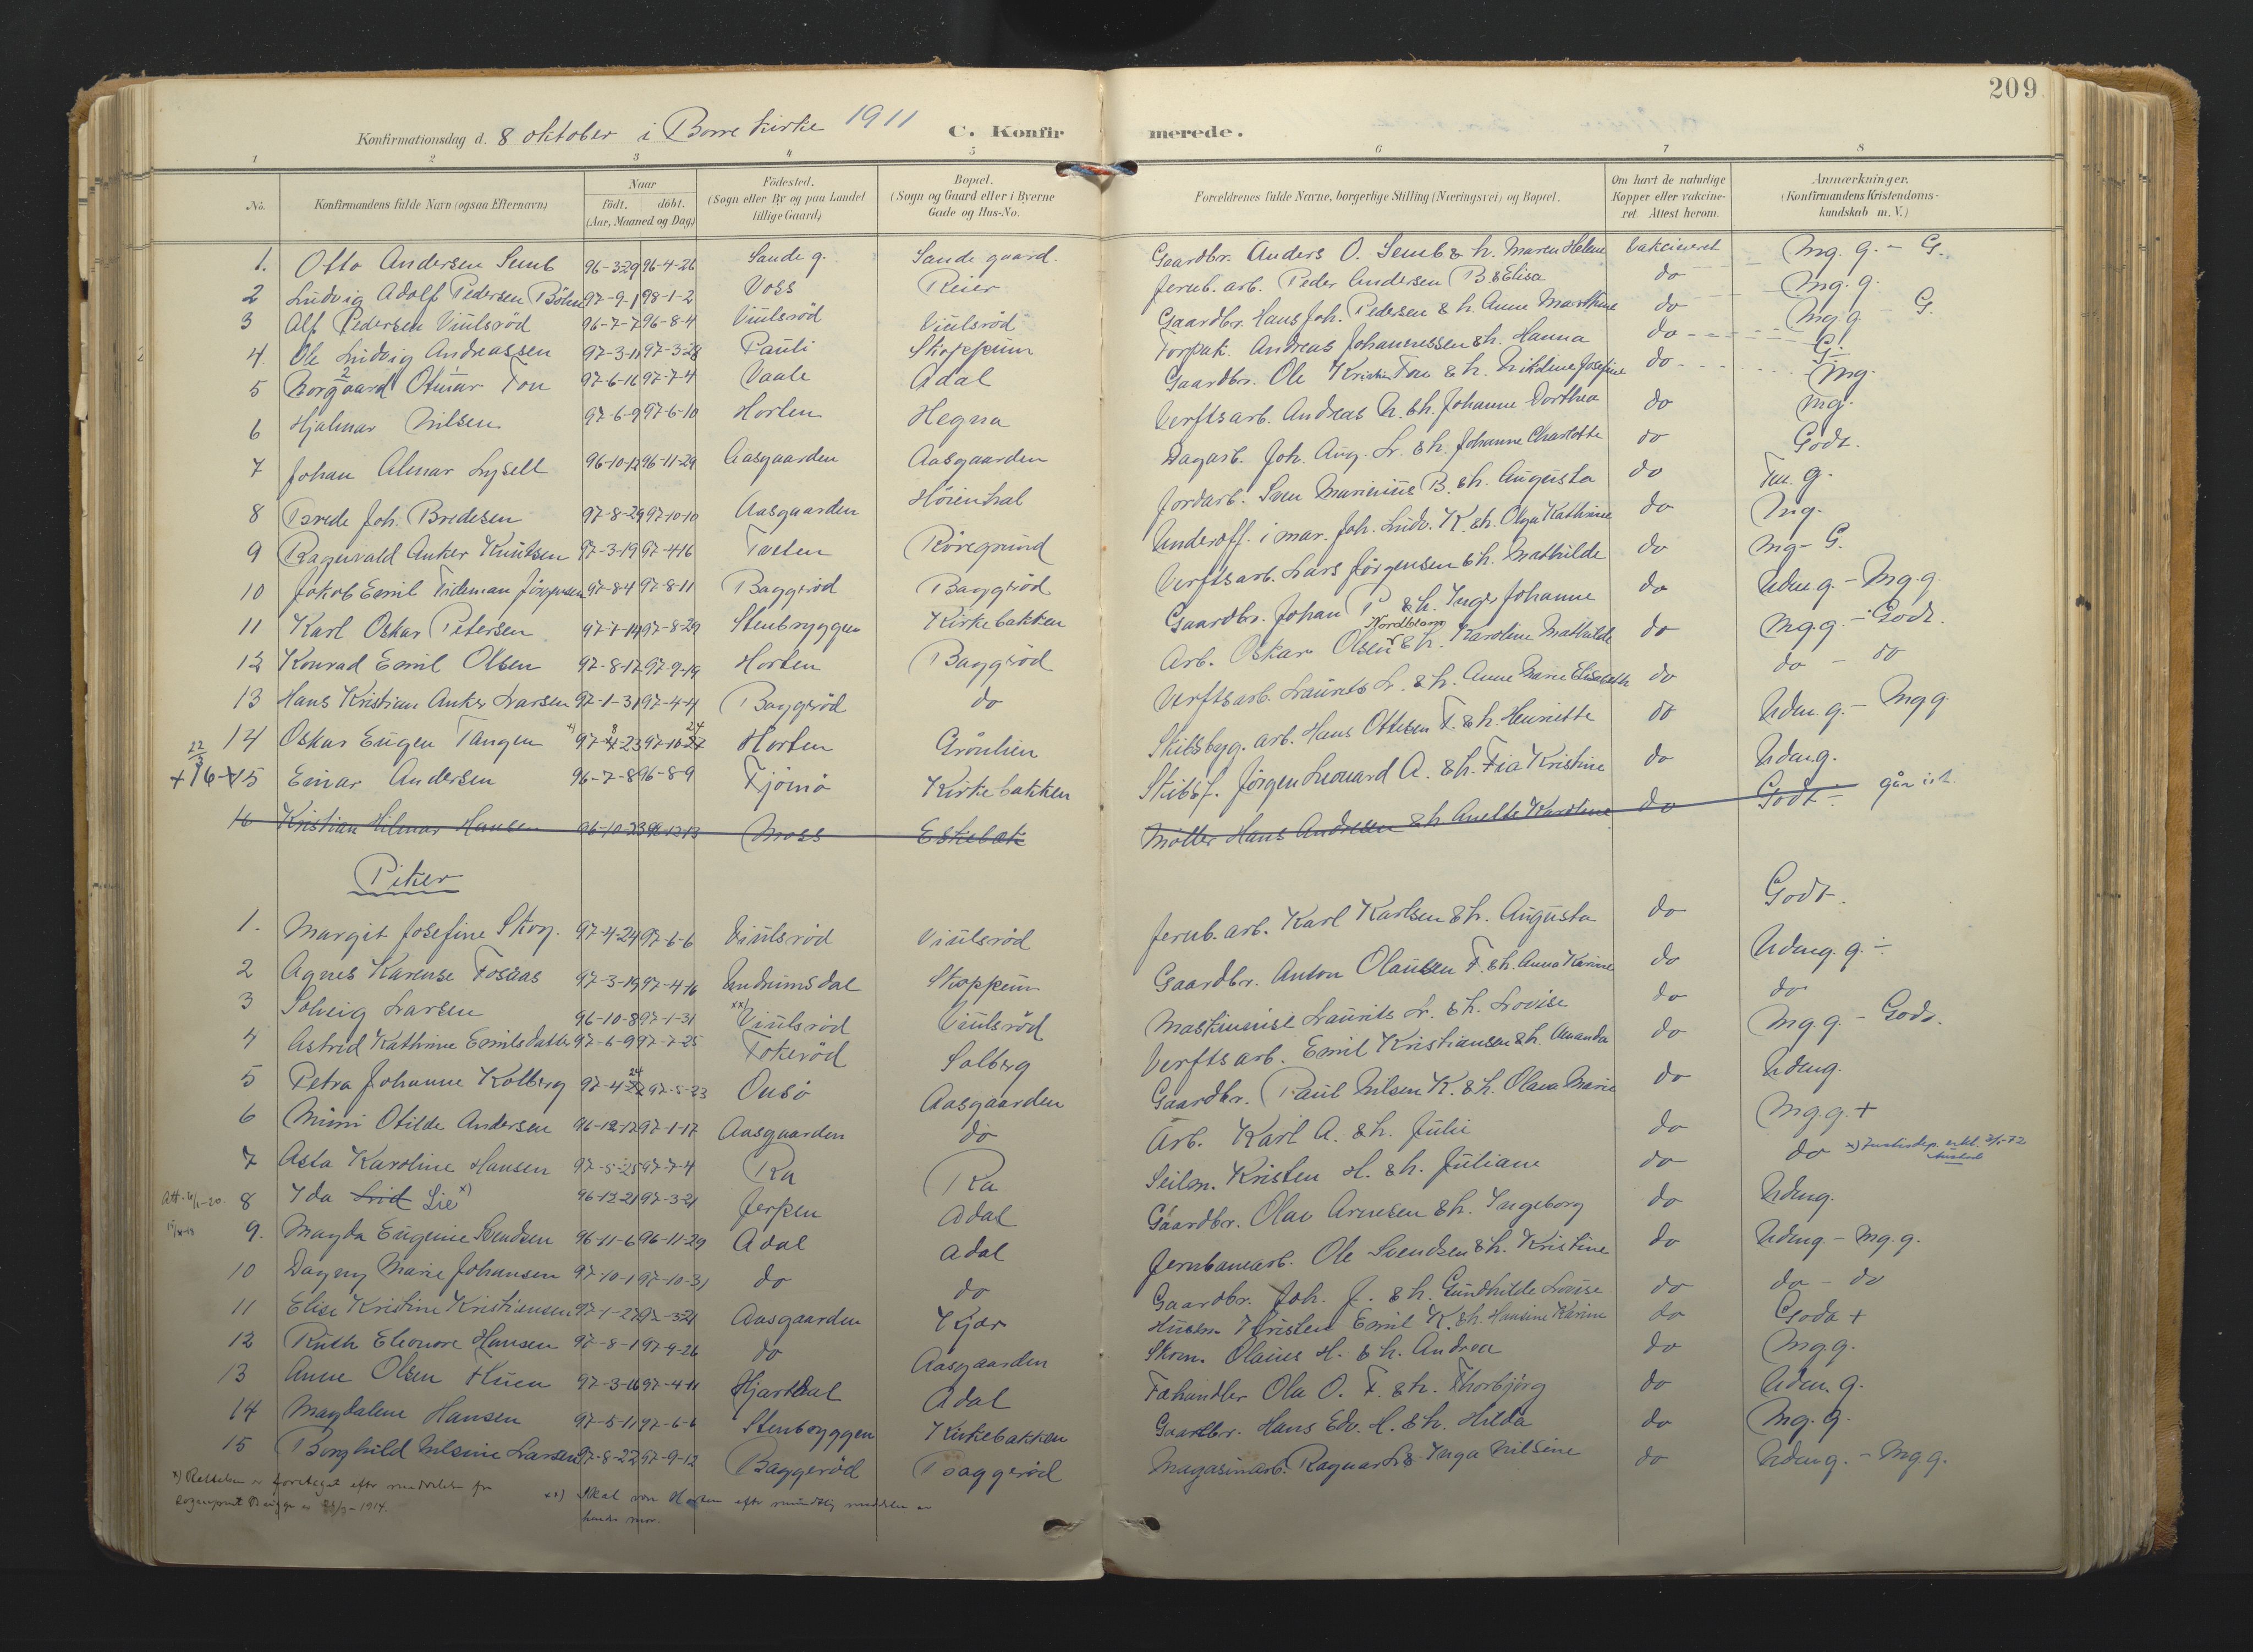 209
Konfirmationsdag d. 8 oktober i Borre kirke 1911 C. Konfirmerede.
1 2 3 4 5 6 7 8
No. Konfirmandens fulde Navn (ogsaa Efternavn) Naar født. døbt. (Aar, Maaned og Dag) Fødested. (Sogn eller By og paa Landet tillige Gaard) Bopæl. (Sogn og Gaard eller i Byerne Gade og Hus-No. Forældrenes fulde Navne, borgerlige Stilling (Næringsvei) og Bopæl. Om havt de naturlige Kopper eller vakcineret. Attest herom. Anmærkninger. (Konfirmandens Kristendomskundskab m. V.)
1. Otto Andersen Semb 96-3-29 96-4-26 Sande g. Sande gaard. Gaardbr. Anders O. Semb & h. Maren Helene vakcineret Mg. g. - G.
2 Ludvig Adolf Pedersen 97-9-1 98-1-2 Voss Reier Jernb. arb. Peder Andersen B & Elisa do Mg. g.
3 Alf Pedersen Viulsrød 96-7-7 96-8-4 Viulsrød Viulsrød Gaardbr. Hans Joh. Pedersen & h. Anne Marthine do Mg. g - G.
4. Ole Ludvig Andreassen 97-3-11 97-3-28 Pauli Skoppum Forpakt. Andreas Johannessen & h. Hanna do G.
5 Borgaard Otmar Fon 97-6-16 97-7-4 Vaale Adal Gaardbr. Ole Kristian Fon & h. Nikoline Josefine do Mg.
6 Hjalmar Nilsen 97-6-9 97-6-10 Horten Hegna Verftsarb. Andreas N. & h. Johanne Dorthea do Mg.
7 Johan Almar Lysell 96-10-12 96-11-29 Aasgaarden Aasgaarden Dagarb. Joh. Aug. L. & h. Johanne Charlotte do Godt.
8 Brede Joh. Bredesen 97-8-29 97-10-10 Aasgaarden Høiendal Jordarb. Sven Marinius B. & h. Augusta do Tem. g.
9 Ragnvald Anker Knutsen 97-3-19 97-4-16 Tveten Røregrund Underoff. i mar. Joh. Ludv. K. & h. Olga Kathrine do Mg.
10 Jakob Emil Tideman Jørgensen 97-8-4 97-8-11 Baggerød Baggerød Verftsarb. Lars Jørgensen & h. Mathilde do Mg - G.
11 Karl Oskar Petersen 97-7-14 97-8-29 Stenbryggen Kirkebakken Gaardbr. Johan P & h. Inger Johanne do Udm. g. - Mg. g.
12 Konrad Emil Olsen 97-8-12 97-9-19 Horten Baggerød Arb. Oskar Olsen Nordblom & h. Karoline Mathilde do Mg. g. - Godt.
13 Hans Kristian Anker Larsen 97-1-31 97-4-4 Baggerød do Verftsarb. Laurits L. & h. Anne Marie Elisabeth do do - do
14 Oskar Eugen Tangen x) 97-8-23 97-10-24 Horten Grønlien Skibsbyg. arb. Hans Ottesen T. & h. Henriette do Udm. g. - Mg g.
15 Einar Andersen 96-7-8 96-8-9 Tjømø Kirkebakken Skibsf. Jørgen Leonard A. & h. Fia Kristine do Udm g.
16 Kristian Hilmar Hansen 96-10-23 96-12-13 Moss Eskebæk Møller Hans Andresen & h Anette Karoline do Godt går ut.
Piker
1. Margit Josefine Skog. 97-4-24 97-6-6 Viulsrød Viulsrød Jernb. arb. Karl Karlsen & h. Augusta do Godt.
2 Agnes Karense Fosaas 97-3-19 97-4-16 Undrumsdal Skoppum Gaardbr. Anton Olausen F. & h. Anna Karine do Udm. g. -
3 Solveig Larsen 96-10-8 97-1-31 xx) Viulsrød Viulsrød Maskinist Laurits L. & h. Lovise do do
4 Astrid Kathrine Emilsdatter 97-6-9 97-7-25 Tokerød Solberg Verftsarb. Emil Kristiansen & h. Amanda do Mg. g. - Godt.
5 Petra Johanne Kolberg 97-4-22 24 97-5-23 Onsø Aasgaarden Gaardbr. Paul Nilsen K. & h. Olava Marie do Udm g.
6 Mimi Otilde Andersen 96-12-12 97-1-17 Aasgaarden do Arb. Karl A. & h. Julie do Mg. g. +
7 Asta Karoline Hansen 97-5-25 97-7-4 Ra Ra Seilm. Kristen H. & h. Juliane do do
8 Ida Lie x) 96-12-21 97-3-21 Jerpen Adal Gaardbr. Olav Arnesen & h. Ingeborg do Udm g.
9. Magda Eugenie Svendsen 96-11-6 96-11-29 Adal Adal Jernbanearb. Ole Svendsen & h. Kristine do Udm g - Mg. g.
10 Dagny Marie Johansen 97-10-1 97-10-31 do do Gaardbr. Joh. J. & h. Gundhilde Lovise do do - do
11 Elise Kristine Kristiansen 97-1-27 97-3-21 Aasgaarden Kjær Husm. Kristen Emil K. & h. Hansine Karine do Godt +
12 Ruth Eleonore Hansen 97-8-1 97-9-26 do Aasgaarden Skom. Olaius H. & h. Andrea do Mg. g.
13 Anne Olsen 97-3-16 97-4-11 Hjartdal Adal Fæhandler Ole O. F. & h. Thorbjørg do Udm. g.
14 Magdalene Hansen 97-5-11 97-6-6 Stenbryggen Kirkebakken Gaardbr. Hans Edv. H. & h. Hilda do Mg. g.
15 Borghild Nilsine Larsen 97-8-22 97-9-12 Baggerød Baggerød Magasinarb. Ragnar L & Inga Nilsine do Udm g. - Mg g.
x) Rettelsen er foretaget efter meddelelse fra
1914.
xx) Skal være Horten efter mundtlig meddelelse av
hendes mor.